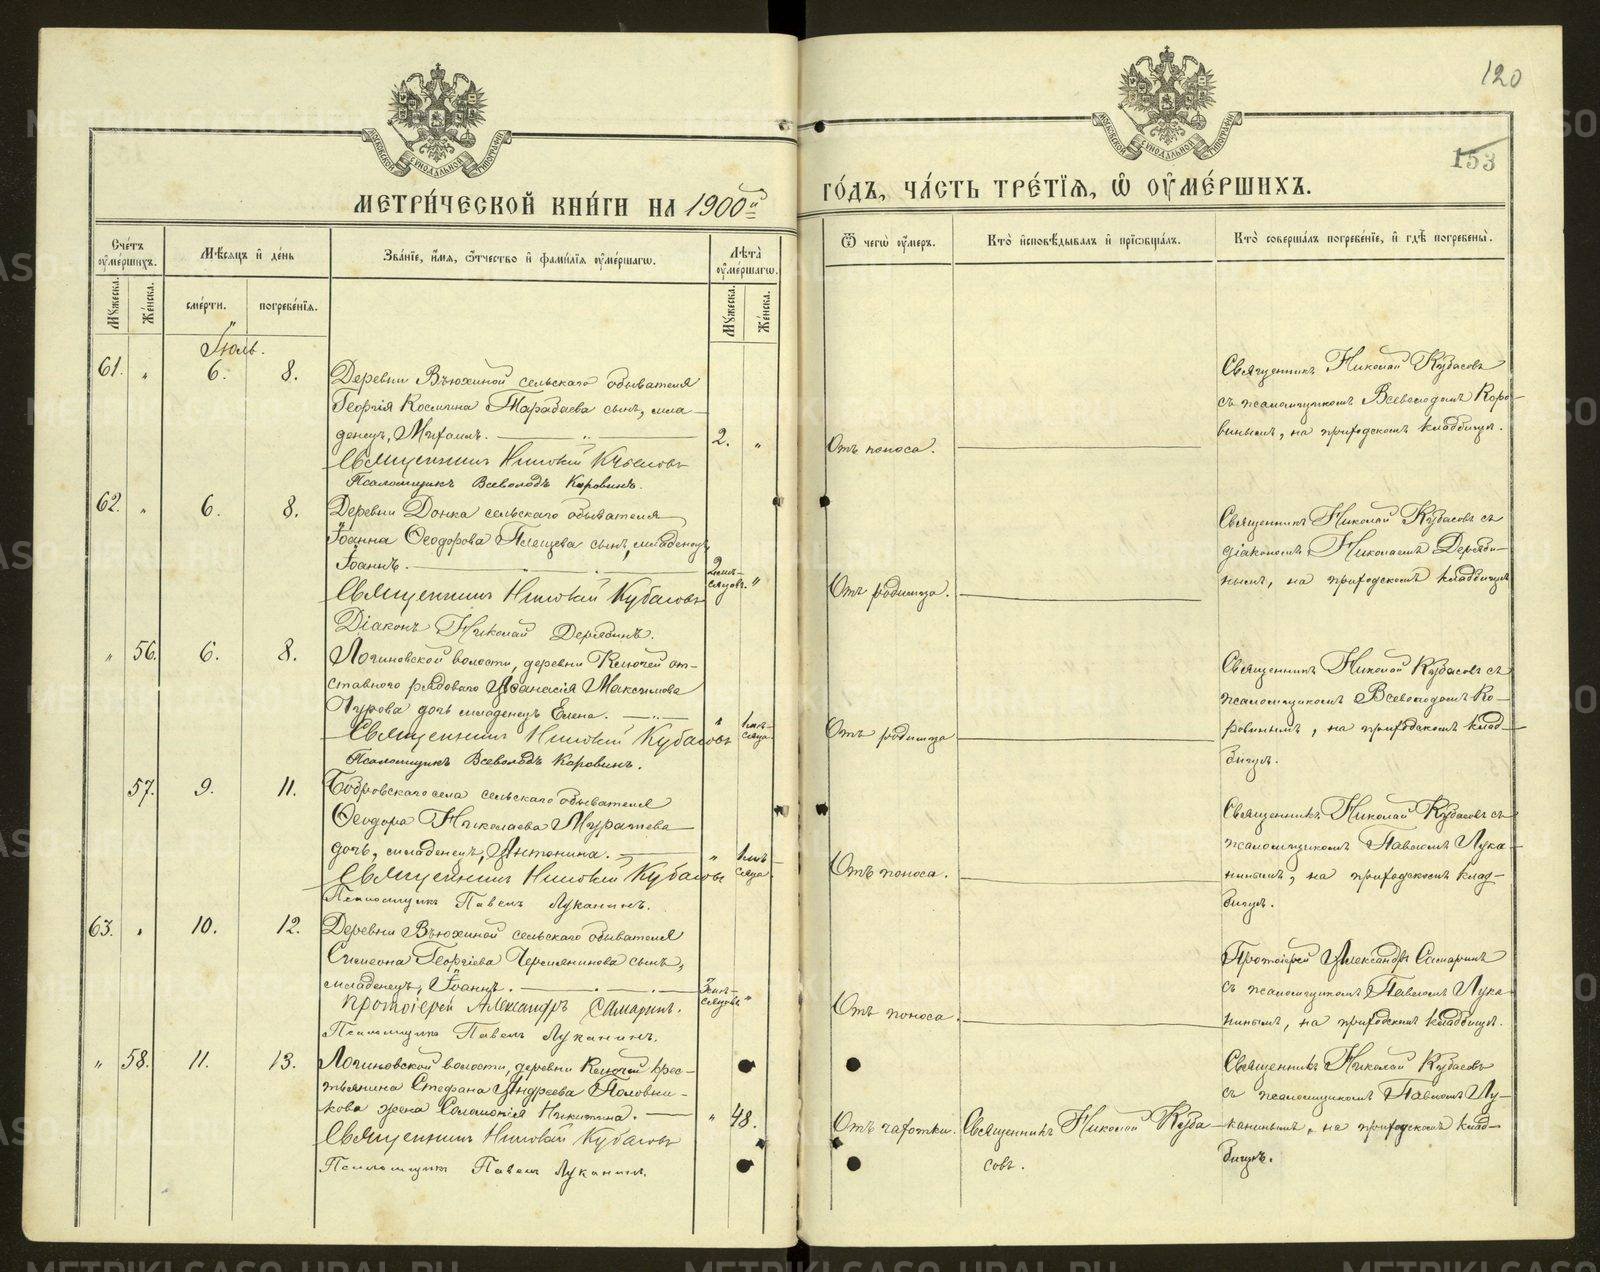 120
153
МОСКОВСКОЙ СѴНОДАЛЬНОЙ ТИПОГРАФІИ
МОСКОВСКОЙ СѴНОДАЛЬНОЙ ТИПОГРАФІИ
МЕТРИ́ЧЕСКОЙ КНИ́ГИ НА 1900й
ГО́ДЪ, ЧА́СТЬ ТРЕ́ТЇѦ, Ѡ҆ ОУ҆МЕ́РШИХЪ.
Сче́тъ оу҆ме́ршихъ.
Мѣ́сѧцъ и҆ де́нь
Зва́нїе, и҆́мѧ, ѻ҆́тчество и҆ фами́лїѧ оу҆ме́ршагѡ.
Лѣ́та оу҆ме́ршагѡ.
Ѿ чегѡ̀ оу҆́меръ.
Кто̀ и҆сповѣ́дывалъ и҆ прїѡбща́лъ.
Кто̀ соверша́лъ погребе́нїе, и҆ гдѣ̀ погребены̀.
Мꙋ́жеска.
Же́нска.
сме́рти.
погребе́нїѧ.
Мꙋ́жеска.
Же́нска.
Іюль.
61. " 6. 8. Деревни Вьюхиной сельскаго обывателя
Георгія Космина Тарабаева сынъ, мла-
денецъ, Михаилъ. 2. "
Священникъ Николай Кубасовъ
Псаломщикъ Всеволодъ Коровинъ.
Отъ поноса.
Священникъ Николай Кубасовъ
съ псаломщикомъ Всеволодомъ Коро-
винымъ, на приходскомъ кладбищѣ.
62. " 6. 8. Деревни Донка сельскаго обывателя
Іоанна Ѳеодорова Плещева сынъ, младенецъ
Іоаннъ. 2 мѣ-
сяцовъ. "
Священникъ Николай Кубасовъ
Діаконъ Николай Дерябинъ.
Отъ родимца.
Священникъ Николай Кубасовъ съ
діакономъ Николаемъ Деряби-
нымъ, на приходскомъ кладбищѣ
" 56. 6. 8. Логиновской волости, деревни Ключей от-
ставного рядоваго Аѳанасія Максимова
Пурова дочь младенецъ Елена. " 1 мѣ-
сяца
Священникъ Николай Кубасовъ
Псаломщикъ Всеволодъ Коровинъ.
Отъ родимца
Священникъ Николай Кубасовъ съ
псаломщикомъ Всеволодомъ Ко-
ровинымъ, на приходскомъ клад-
бищѣ.
57. 9. 11. Бобровскаго села сельскаго обывателя
Ѳеодора Николаева Муратева
дочь, младенецъ, Антонина. " 1 мѣ-
сяца.
Священникъ Николай Кубасовъ
Псаломщикъ Павелъ Луканинъ.
Отъ поноса.
Священникъ Николай Кубасовъ съ
псаломщикомъ Павломъ Лука-
нинымъ, на приходскомъ клад-
бищѣ.
63. " 10. 12. Деревни Вьюхиной сельскаго обывателя
Симеона Георгіева Чермянинова сынъ,
младенецъ, Іоаннъ. 3 мѣ-
сяцовъ "
Протоіерей Александръ Самаринъ.
Псаломщикъ Павелъ Луканинъ.
Отъ поноса.
Протоіерей Александръ Самаринъ
съ псаломщикомъ Павломъ Лука
нинымъ, на приходскомъ кладбищѣ.
" 58. 11. 13. Логиновской волости, деревни Ключей крес-
тьянина Стефана Андреева Половни-
кова жена Соломонія Никитина. " 48.
Священникъ Николай Кубасовъ
Псаломщикъ Павелъ Луканинъ.
Отъ чахотки.
Священникъ Николай Куба-
совъ.
Священникъ Николай Кубасовъ
съ псаломщикомъ Павломъ Лу-
канинымъ, на приходскомъ клад-
бищѣ.
METRIKI.GASO-URAL.RU